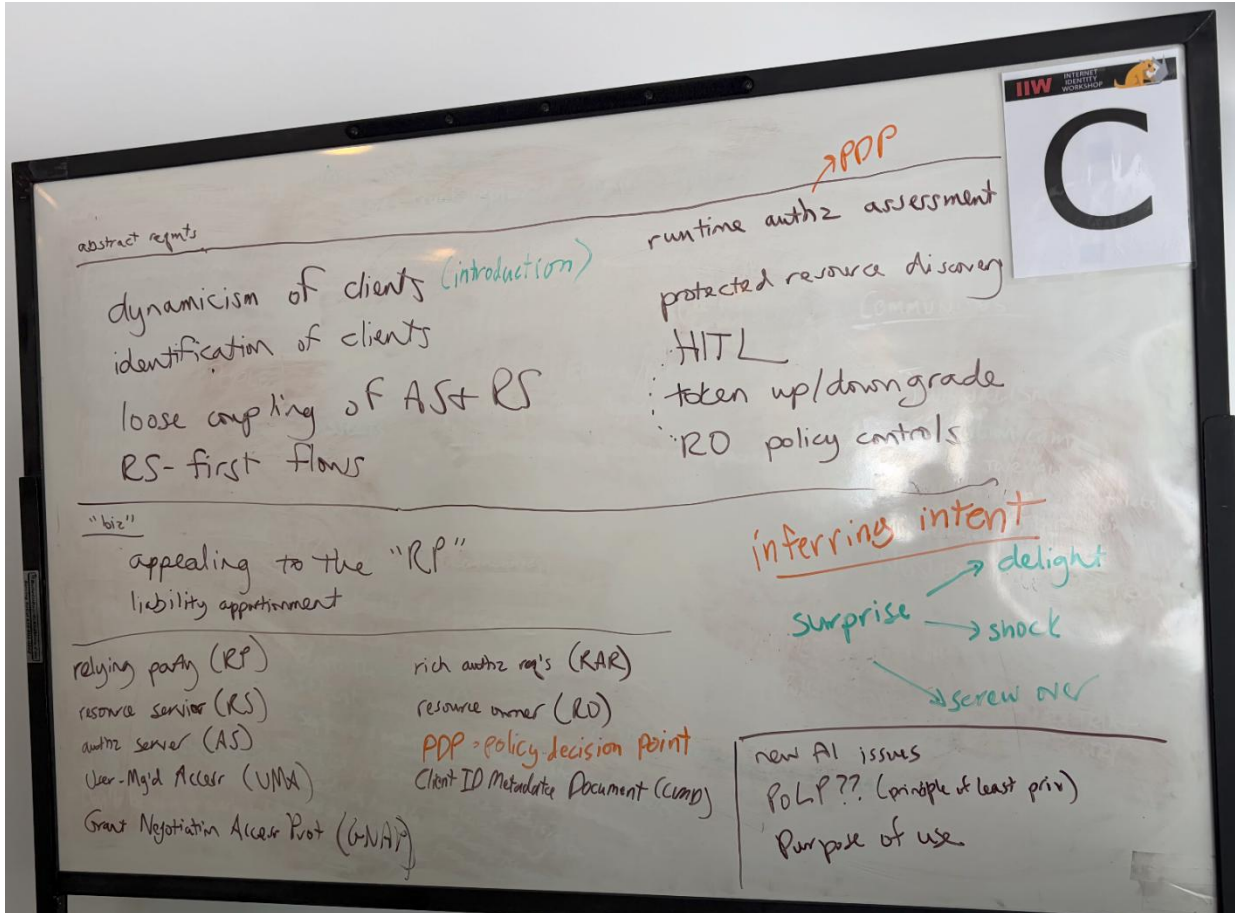 IIW INTERNET IDENTITY WORKSHOP
C
abstract reqmts
dynamicism of clients (introduction)
identification of clients
loose coupling of AS+ RS
RS-first flows
PDP
runtime authz assessment
protected resource discovery
HITL
token up/downgrade
RO policy controls
"biz"
appealing to the "RP"
liability apportionment
inferring intent
surprise
delight
shock
screw over
relying party (RP)
resource server (RS)
authz server (AS)
User-Mg'd Access (UMA)
Grant Negotiation Access Prot (GNAP)
rich authz req's (RAR)
resource owner (RO)
PDP = policy decision point
Client ID Metadata Document (CIMD)
new AI issues
PoLP?? (principle of least priv)
Purpose of use